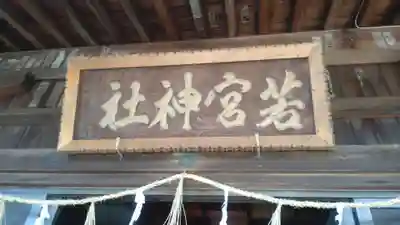 若宮神社